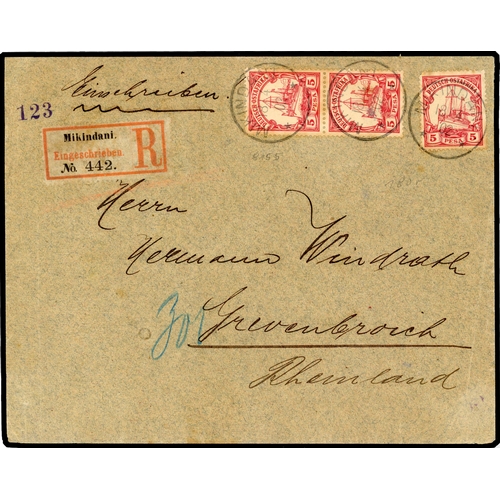 Einschreiben.
123
Mikindani.
Eingeschrieben
No 442.
R
DEUTSCH-OSTAFRIKA
5 PESA 5
DEUTSCH-OSTAFRIKA
5 PESA 5
DEUTSCH-OSTAFRIKA
5 PESA 5
Herrn
Hermann Windrath
Grevenbroich
Rheinland